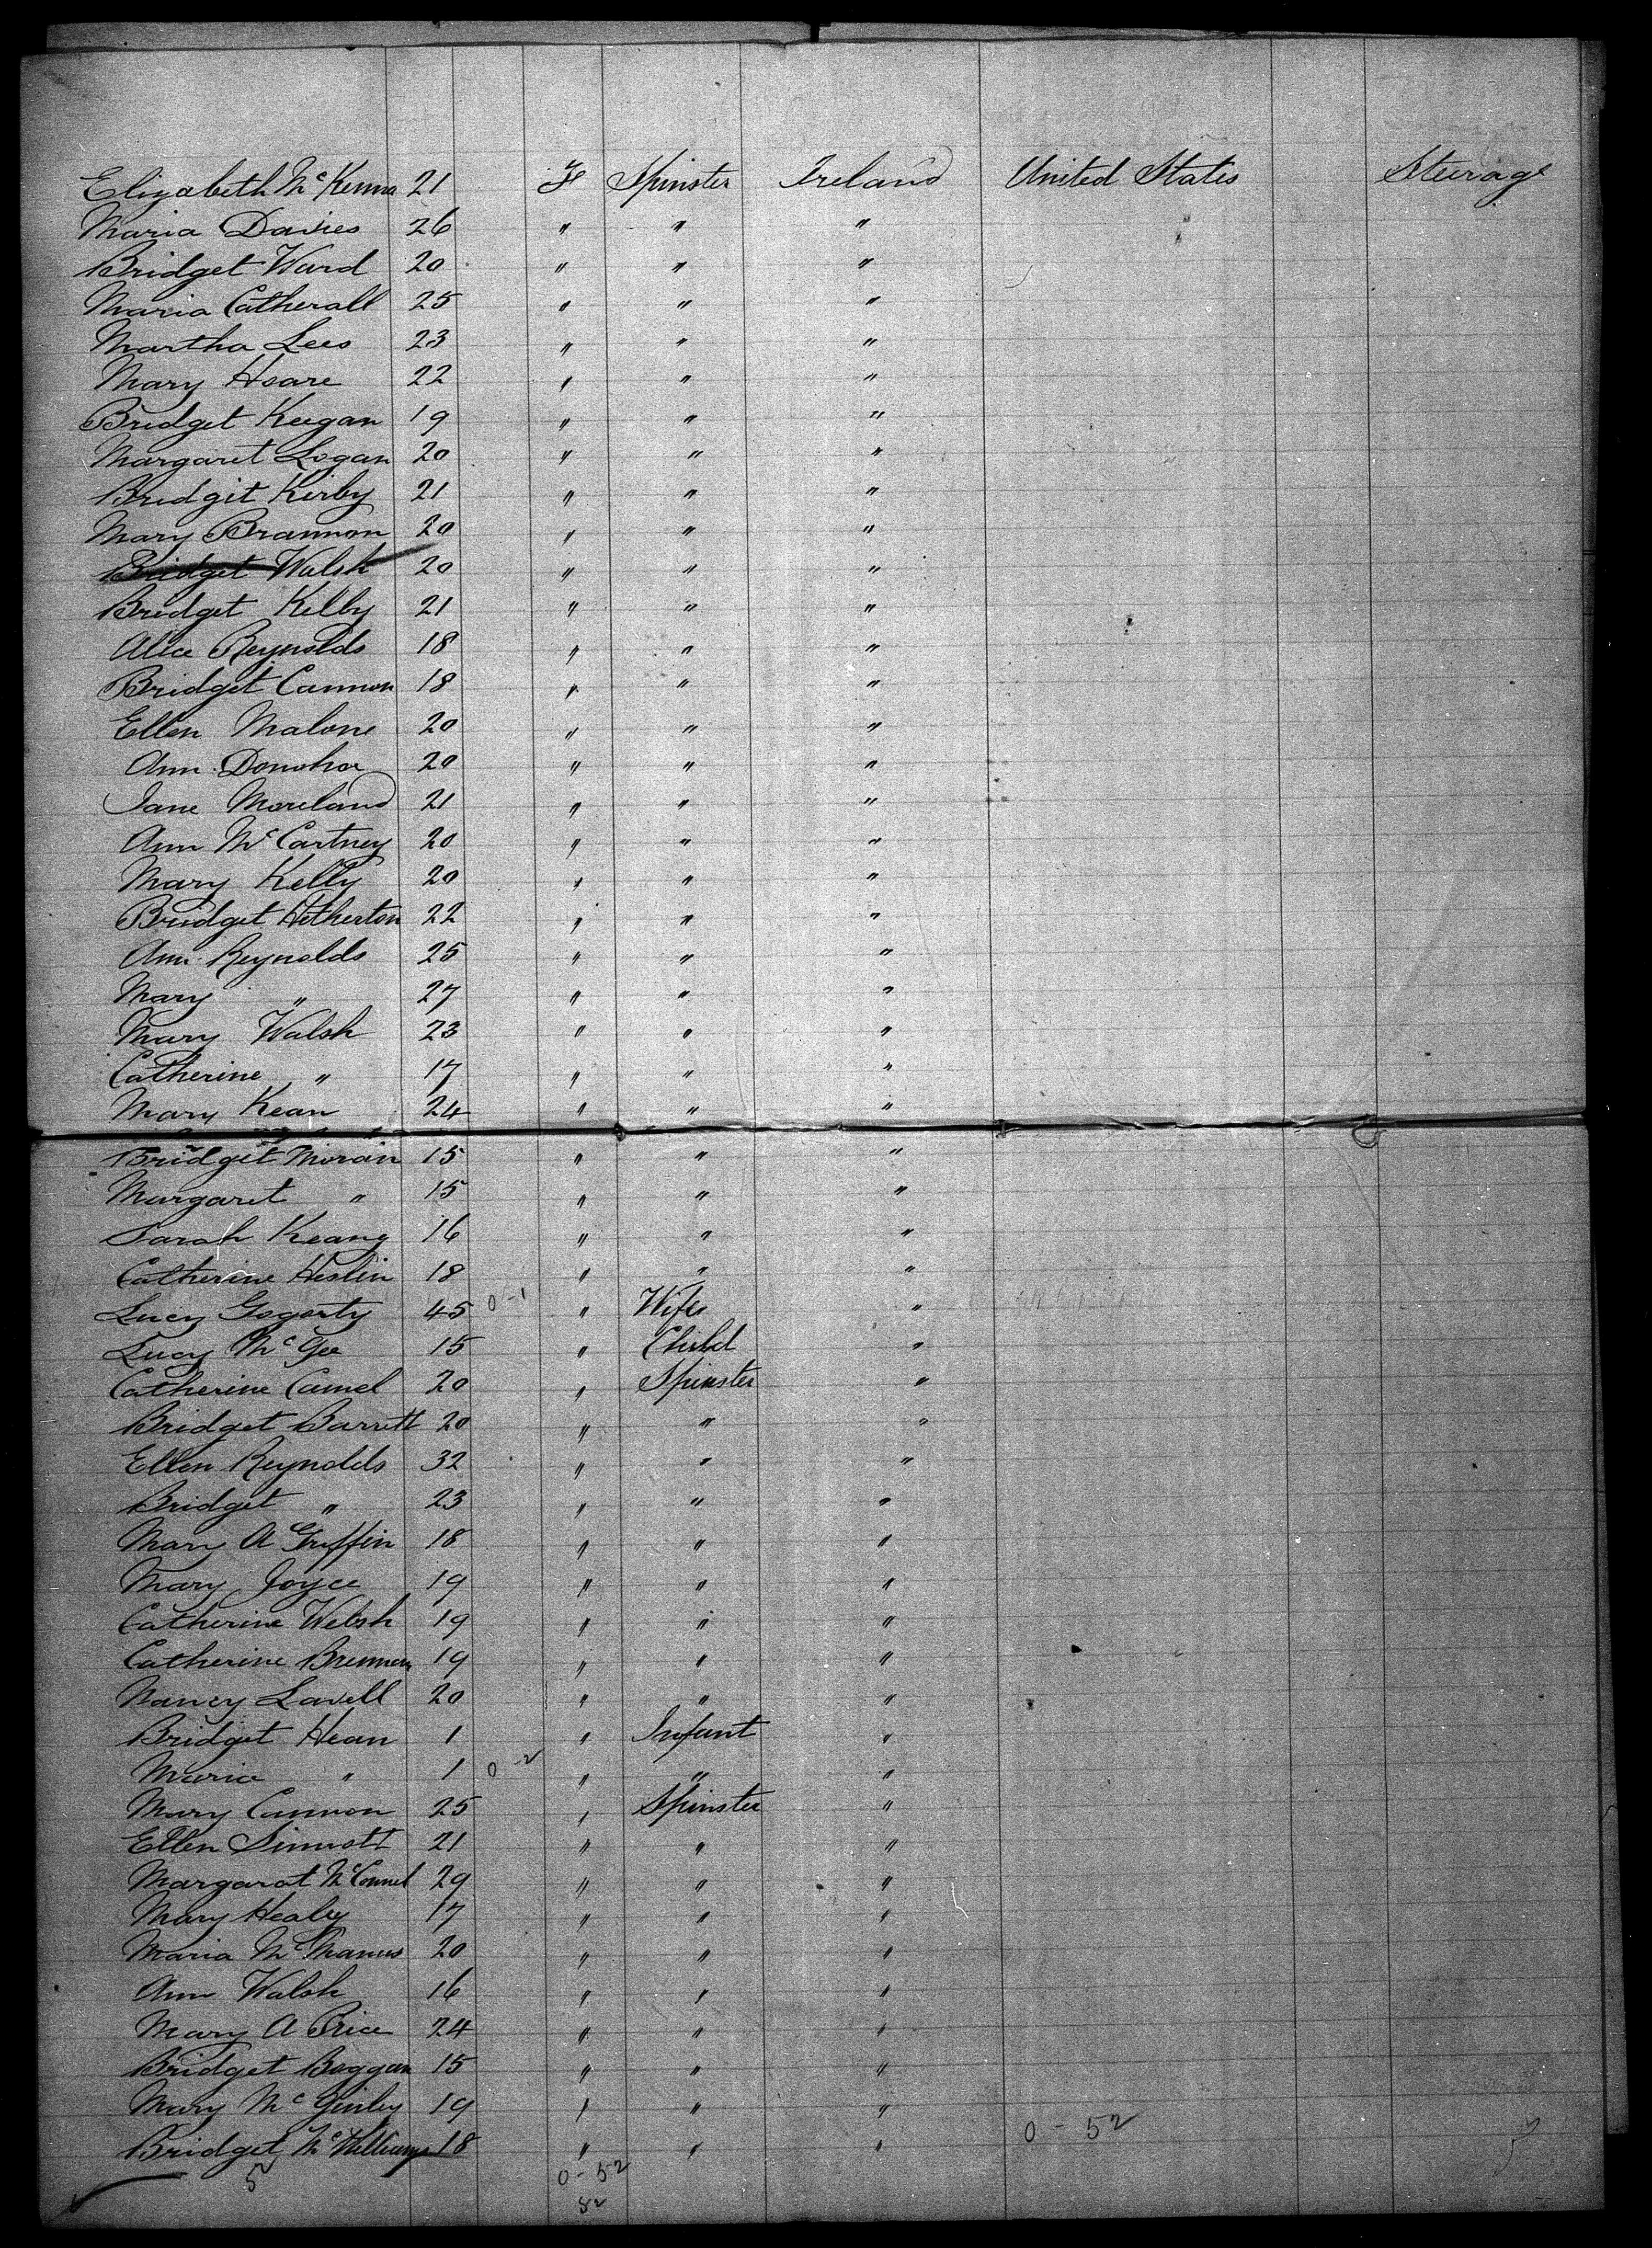 Elizabeth McKenna 21 F Spinster Ireland United States Steerage
Maria Davies 26 " " "
Bridget Ward 20 " " "
Maria Catherall 25 " " "
Martha Lees 23 " " "
Mary Hoare 22 " " "
Bridget Keegan 19 " " "
Margaret Logan 20 " " "
Bridgit Kirby 21 " " "
Mary Brannon 20 " " "
Bridget Walsh 20 " " "
Bridget Kelly 21 " " "
Alice Reynolds 18 " " "
Bridget Cannon 18 " " "
Ellen Malone 20 " " "
Ann Donohoe 20 " " "
Jane Moreland 21 " " "
Ann McCartney 20 " " "
Mary Kelly 20 " " "
Bridget Hetherton 22 " " "
Ann Reynolds 25 " " "
Mary " 27 " " "
Mary Walsh 23 " " "
Catherine " 17 " " "
Mary Kean 24 " " "
Bridget Moran 15 " " "
Margaret " 15 " " "
Sarah Keany 16 " " "
Catherine Heslin 18 " " "
Lucy Gogarty 45 0-1 " Wife "
Lucy McGee 15 " Child "
Catherine Camel 20 " Spinster "
Bridget Barrett 20 " " "
Ellen Reynolds 32 " " "
Bridget " 23 " " "
Mary A Griffin 18 " " "
Mary Joyce 19 " " "
Catherine Welsh 19 " " "
Catherine Brennen 19 " " "
Nancy Lavell 20 " " "
Bridget Hean 1 " Infant "
Maria " 1 0-2 " " "
Mary Cannon 25 " Spinster "
Ellen Sinnott 21 " " "
Margarat McConnel 29 " " "
Mary Healey 17 " " "
Maria McManus 20 " " "
Ann Walsh 16 " " "
Mary A Price 24 " " "
Bridget Boggan 15 " " "
Mary McGinley 19 " " "
Bridget McWilliams 18 " " " 0-52
5 0-52
52